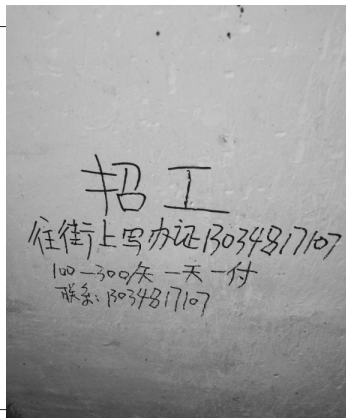 招工
往街上写办证13034817107
100—300天 一天一付
联系:13034817107